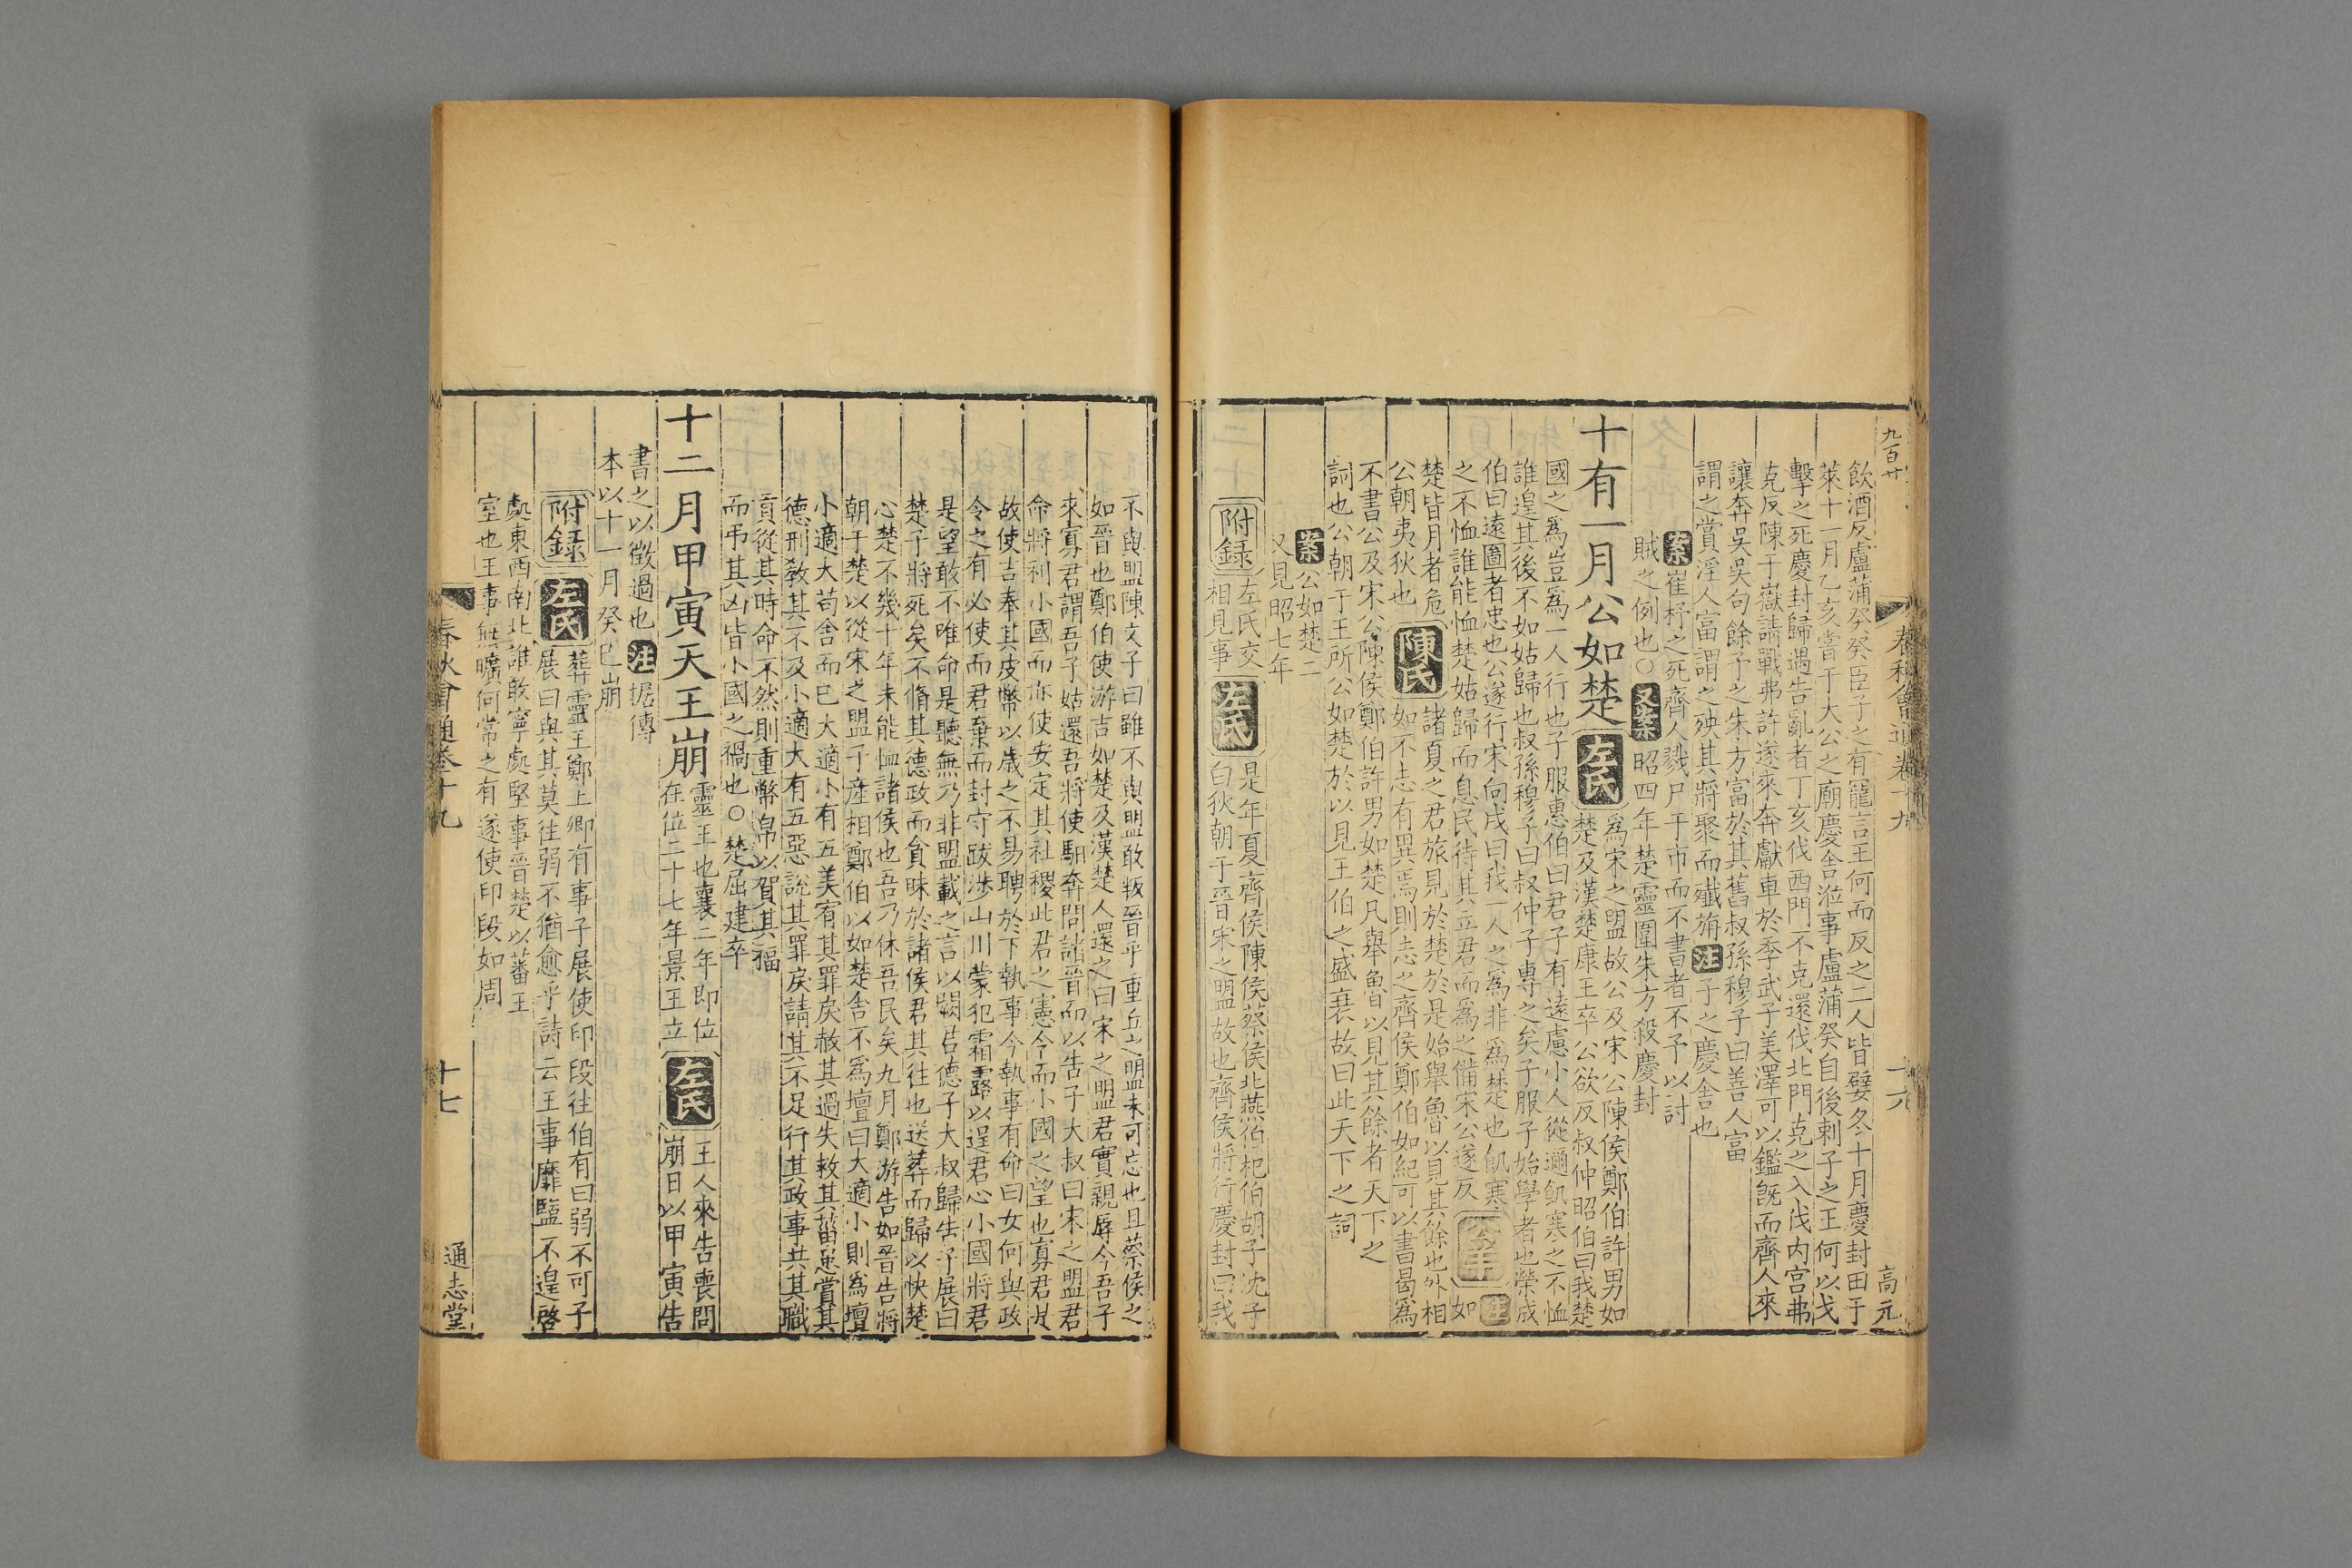 九百廿
春秋會通卷十九
十六
高元
飲酒反盧蒲癸癸臣子之有寵言王何而反之二人皆嬖冬十月慶封田于
萊十一月乙亥嘗于大公之廟慶舍涖事盧蒲癸自後刺子之王何以戈
擊之死慶封歸遇告亂者丁亥伐西門不克還伐北門克之入伐内宫弗
克反陳于嶽請戰弗許遂來奔獻車於季武子美澤可以鑑旣而齊人來
讓奔吳吳句餘予之朱方富於其舊叔孫穆子曰善人富
謂之賞淫人富謂之殃其將聚而殲旃注子之慶舍也
案崔杼之死齊人戮尸于市而不書者不予以討
賊之例也○又案昭四年楚靈圍朱方殺慶封
十有一月公如楚左氏爲宋之盟故公及宋公陳侯鄭伯許男如
楚及漢楚康王卒公欲反叔仲昭伯曰我楚
國之爲豈爲一人行也子服惠伯曰君子有遠慮小人從邇飢寒之不恤
誰遑其後不如姑歸也叔孫穆子曰叔仲子專之矣子服子始學者也榮成
伯曰遠圖者忠也公遂行宋向戌曰我一人之爲非爲楚也飢寒
之不恤誰能恤楚姑歸而息民待其立君而爲之備宋公遂反公羊注如
楚皆月者危陳氏諸夏之君旅見於楚於是始舉魯以見其餘也外相
公朝夷狄也如不志有異焉則志之齊侯鄭伯如紀可以書曷爲
不書公及宋公陳侯鄭伯許男如楚凡舉魯以見其餘者天下之
詞也公朝于王所公如楚於以見王伯之盛衰故曰此天下之詞
案公如楚二
又見昭七年
附録左氏交相見事左氏是年夏齊侯陳侯蔡侯北燕伯杞伯胡子沈子
白狄朝于晉宋之盟故也齊侯將行慶封曰我
不與盟陳文子曰雖不與盟敢叛晉乎重丘之盟未可忘也且蔡侯之
如晉也鄭伯使游吉如楚及漢楚人還之曰宋之盟君實親辱今吾子
來寡君謂吾子姑還吾將使馹奔問諸晉而以告子大叔曰宋之盟君
命將利小國而亦使安定其社稷此君之憲令而小國之望也寡君是
故使吉奉其皮幣以歲之不易聘於下執事今執事有命曰女何與政
令之有必使而君棄而封守跋涉山川蒙犯霜露以逞君心小國將君
是望敢不唯命是聽無乃非盟載之言以闕君德子大叔歸告子展曰
楚子將死矣不脩其德政而貪昧於諸侯君其往也送葬而歸以快楚
心楚不幾十年未能恤諸侯也吾乃休吾民矣九月鄭游告如晉告將
朝于楚以從宋之盟子産相鄭伯以如楚舍不爲壇曰大適小則爲壇
小適大苟舍而已大適小有五美宥其罪戾赦其過失救其菑患賞其
德刑敎其不及小適大有五惡説其罪戾請其不足行其政事共其職
貢從其時命不然則重幣帛以賀其福
而弔其凶皆小國之禍也○楚屈建卒
十二月甲寅天王崩靈王也襄二年即位
在位二十七年景王立左氏王人來告喪問
崩日以甲寅告
書之以徵過也注据傳
本以十一月癸巳崩
附録左氏葬靈王鄭上卿有事子展使印段往伯有曰弱不可子
展曰與其莫往弱不猶愈乎詩云王事靡盬不遑啓
處東西南北誰敢寧處堅事晉楚以蕃王
室也王事無曠何常之有遂使印段如周
春秋會通卷十九
十七
通志堂